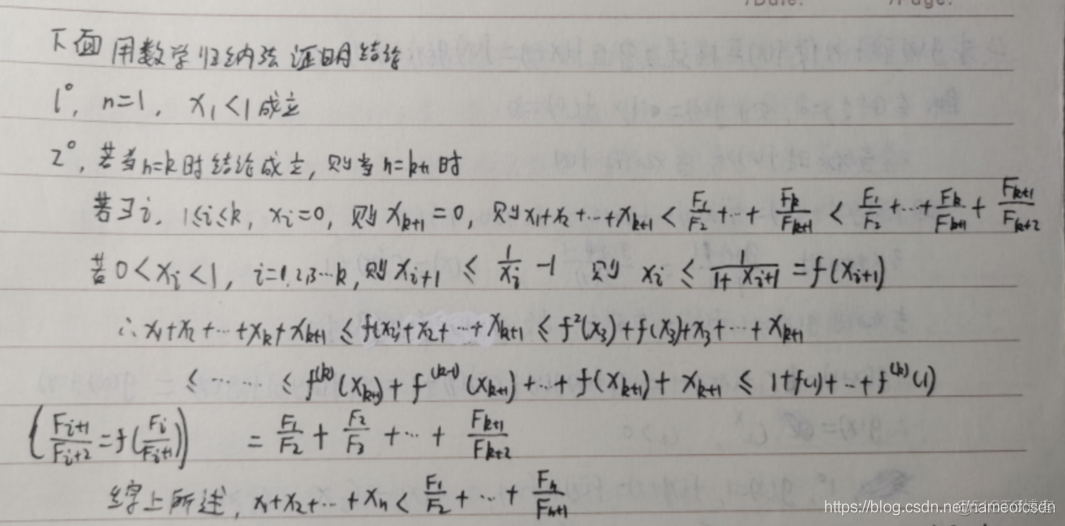 /Date: /Page:
下面用数学归纳法证明结论
1°, n=1, x₁<1成立
2°, 若当n=k时结论成立, 则当n=k+1时
若∃i, 1≤i≤k, xᵢ=0, 则xₖ₊₁=0, 则x₁+x₂+…+xₖ₊₁ < F₁/F₂+…+Fₖ/Fₖ₊₁ < F₁/F₂+…+Fₖ/Fₖ₊₁+Fₖ₊₁/Fₖ₊₂
若0<xᵢ<1, i=1,2,3…k, 则xᵢ₊₁ ≤ 1/xᵢ -1 则 xᵢ ≤ 1/(1+xᵢ₊₁) = f(xᵢ₊₁)
∴x₁+x₂+…+xₖ+xₖ₊₁ ≤ f(x₂)+x₂+…+xₖ₊₁ ≤ f²(x₃)+f(x₃)+x₃+…+xₖ₊₁
≤ …… ≤ f⁽ᵏ⁾(xₖ₊₁)+f⁽ᵏ⁻¹⁾(xₖ₊₁)+…+f(xₖ₊₁)+xₖ₊₁ ≤ 1+f(1)+…+f⁽ᵏ⁾(1)
(Fᵢ₊₁/Fᵢ₊₂=f(Fᵢ/Fᵢ₊₁)) = F₁/F₂+F₂/F₃+…+Fₖ₊₁/Fₖ₊₂
综上所述, x₁+x₂+…+xₙ < F₁/F₂+…+Fₙ/Fₙ₊₁
https://blog.csdn.net/nameofcsdn